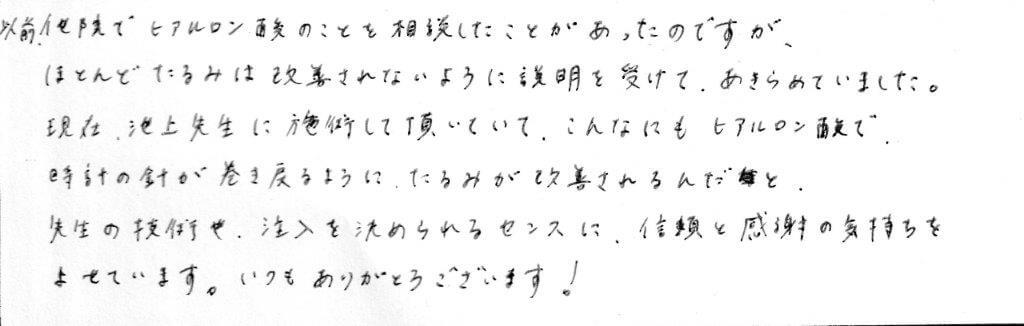 以前、他院でヒアルロン酸のことを相談したことがあったのですが、
ほとんどたるみは改善されないように説明を受けて、あきらめていました。
現在、池上先生に施術して頂いていて、こんなにもヒアルロン酸で、
時計の針が巻き戻るように、たるみが改善されるんだと、
先生の技術や、注入を決められるセンスに、信頼と感謝の気持ちを
よせています。いつもありがとうございます!